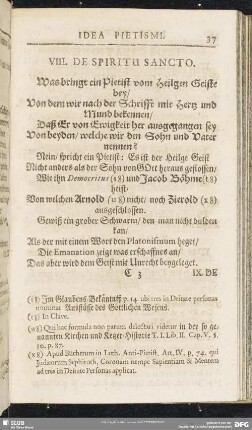 IDEA PIETISMI.
37
VIII. DE SPIRITU SANCTO.
Was bringt ein Pietist vom Heilgen Geiste
bey/
Von dem wir nach der Schrifft mit Hertz und
Mund bekennen/
Daß Er von Ewigkeit her ausgegangen sey
Von beyden/ welche wir den Sohn und Vater
nennen?
Nein/ spricht ein Pietist: Es ist der Heilge Geist
Nicht anders als der Sohn von GOtt heraus geflossen/
Wie ihn Democritus (18) und Jacob Böhme (18)
heist/
Von welchen Arnold (18) nicht/ noch Zierold (18)
ausgeschlossen.
Gewiß ein grober Schwarm/ den man nicht dulden
kan/
Als der mit einem Wort den Platonismum heget/
Die Emanation zeigt was erschaffnes an/
Das aber wird dem Geist mit Unrecht beygeleget.
C 3
IX. DE
(18) Im Glaubens Bekäntnüß p. 14. ubi tres in Deitate personas
nominat Ausflüsse des Göttlichen Wesens.
(18) In Clave.
(18) Qui hac formula non parum delectari videtur in der so ge-
nannten Kirchen und Ketzer-Historie T. I. Lib. II. Cap. V. §.
10. p. 87.
(18) Apud Bücherum in Luth. Anti-Pietist. Art. IV. p. 74. qui
Judæorum Sephiroth, Coronam nempe Sapientiam & Mentem
ad tres in Deitate Personas applicat.
SLUB